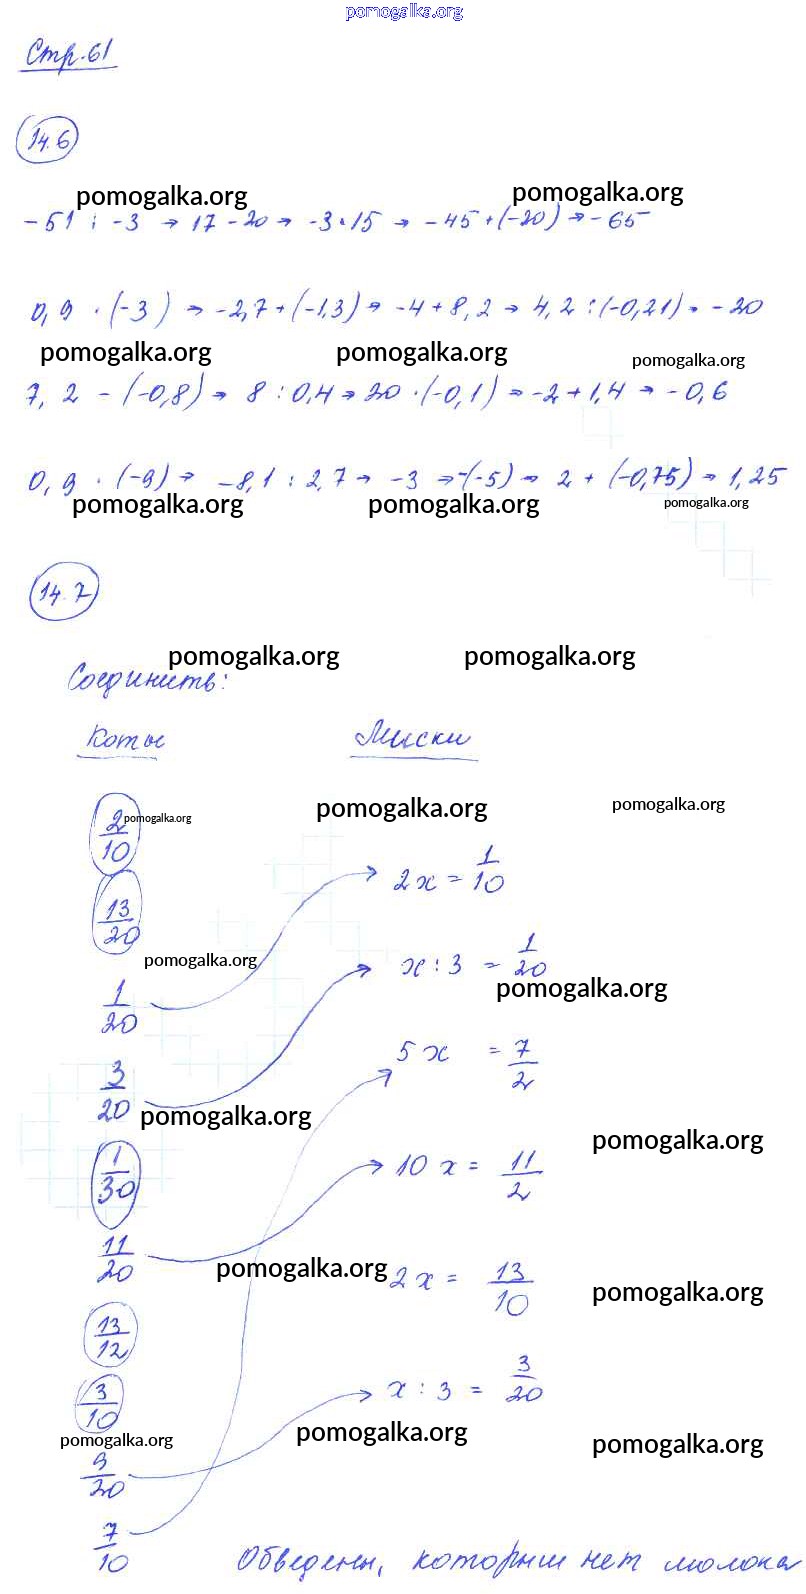 pomogalka.org
Стр. 61
14.6
pomogalka.org pomogalka.org
-51 : -3 → 17 - 20 → -3 · 15 → -45 + (-20) → -65
0,9 · (-3) → -2,7 + (-1,3) → -4 + 8,2 → 4,2 : (-0,21) → -20
pomogalka.org pomogalka.org pomogalka.org
7,2 - (-0,8) → 8 : 0,4 → 20 · (-0,1) → -2 + 1,4 → -0,6
0,9 · (-9) → -8,1 : 2,7 → -3 → -(-5) → 2 + (-0,75) → 1,25
pomogalka.org pomogalka.org pomogalka.org
14.7
pomogalka.org pomogalka.org
Соединить:
Коты Миски
2/10 pomogalka.org pomogalka.org pomogalka.org
2x = 1/10
13/20
pomogalka.org x : 3 = 1/20
pomogalka.org
1/20
5x = 7/2
3/20 pomogalka.org
pomogalka.org
1/30 10x = 11/2
11/20 pomogalka.org 2x = 13/10
pomogalka.org
13/12
3/10 x : 3 = 3/20
pomogalka.org pomogalka.org pomogalka.org
9/20
7/10
Обведены, которым нет молока